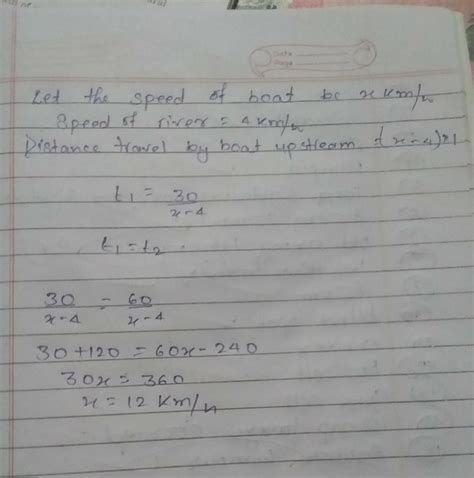 Date
Page
Let the speed of boat be x km/h
Speed of river = 4 km/h
Distance travel by boat upstream = (x-4)×1
t₁ = 30/(x-4)
t₁ = t₂
30/(x-4) = 60/(x-4)
30+120 = 60x-240
30x = 360
x = 12 km/h